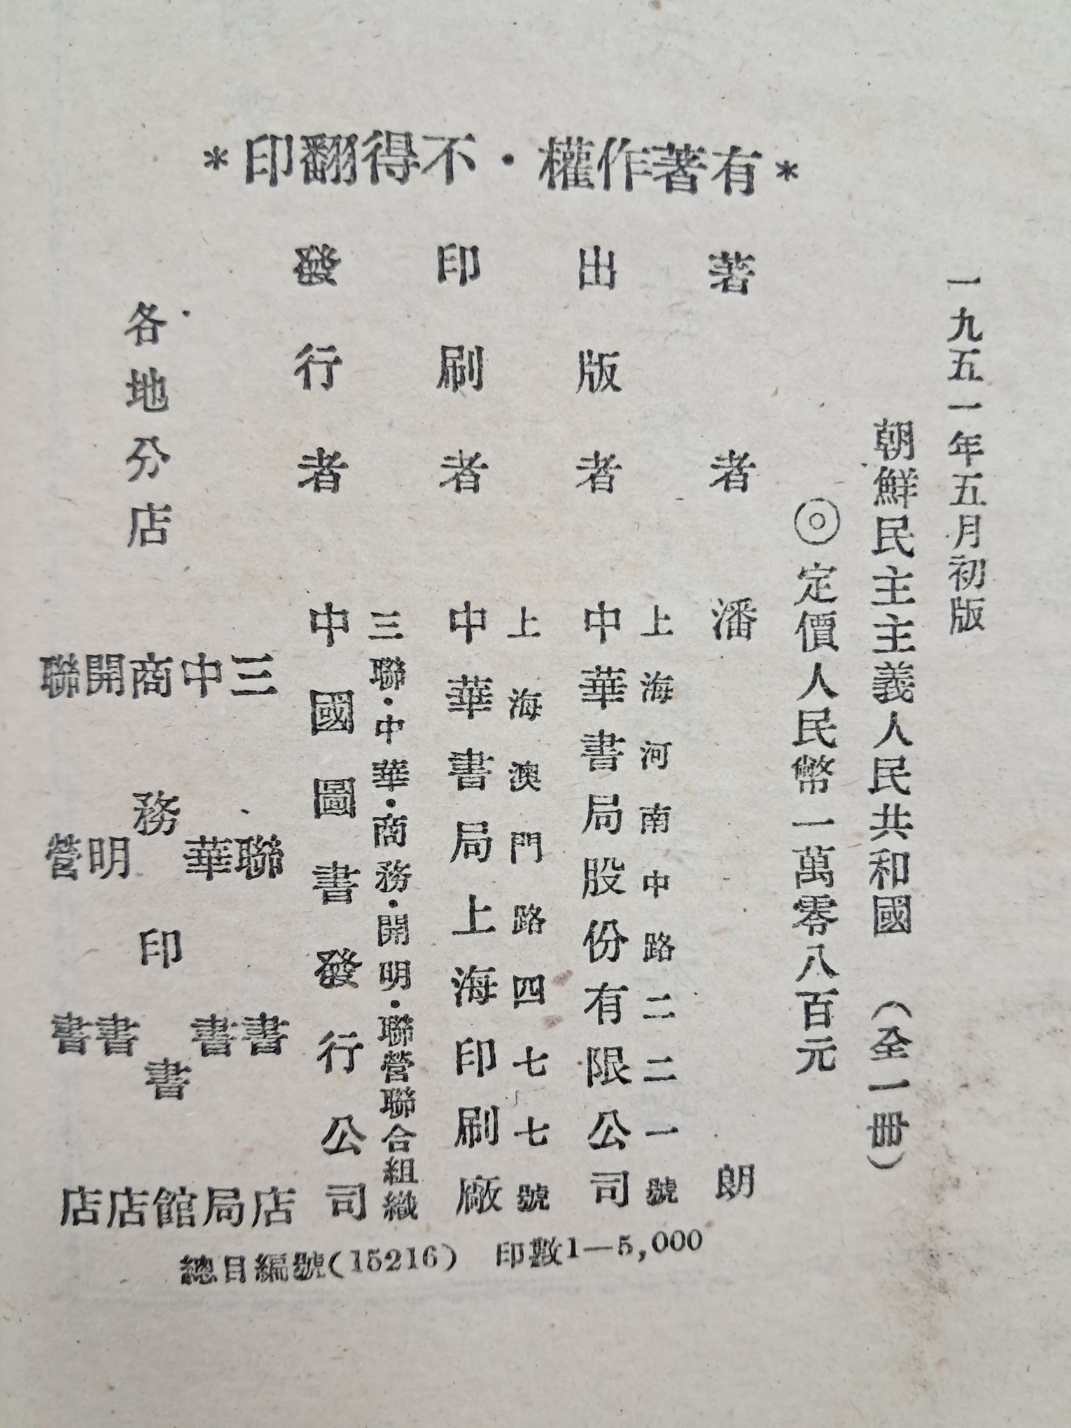 *有著作權・不得翻印*
一九五一年五月初版
朝鮮民主主義人民共和國 (全一册)
◎定價人民幣一萬零八百元
著者 潘朗
出版者 中華書局股份有限公司
上海河南中路二二一號
印刷者 中華書局上海印刷廠
上海澳門路四七七號
發行者 中國圖書發行公司
三聯・中華・商務・開明・聯營聯合組織
各地分店
三聯書店
中華書局
商務印書館
開明書店
聯營書店
總目編號(15216) 印數1—5,000